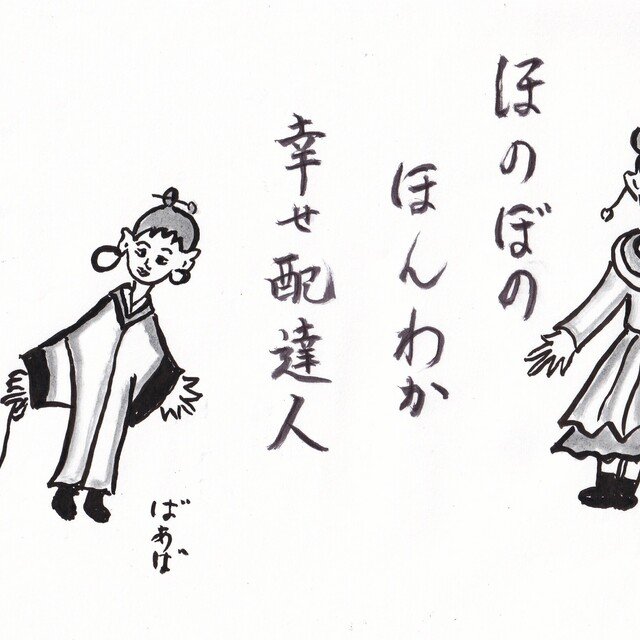 ほのぼの
ほんわか
幸せ配達人
ばあば